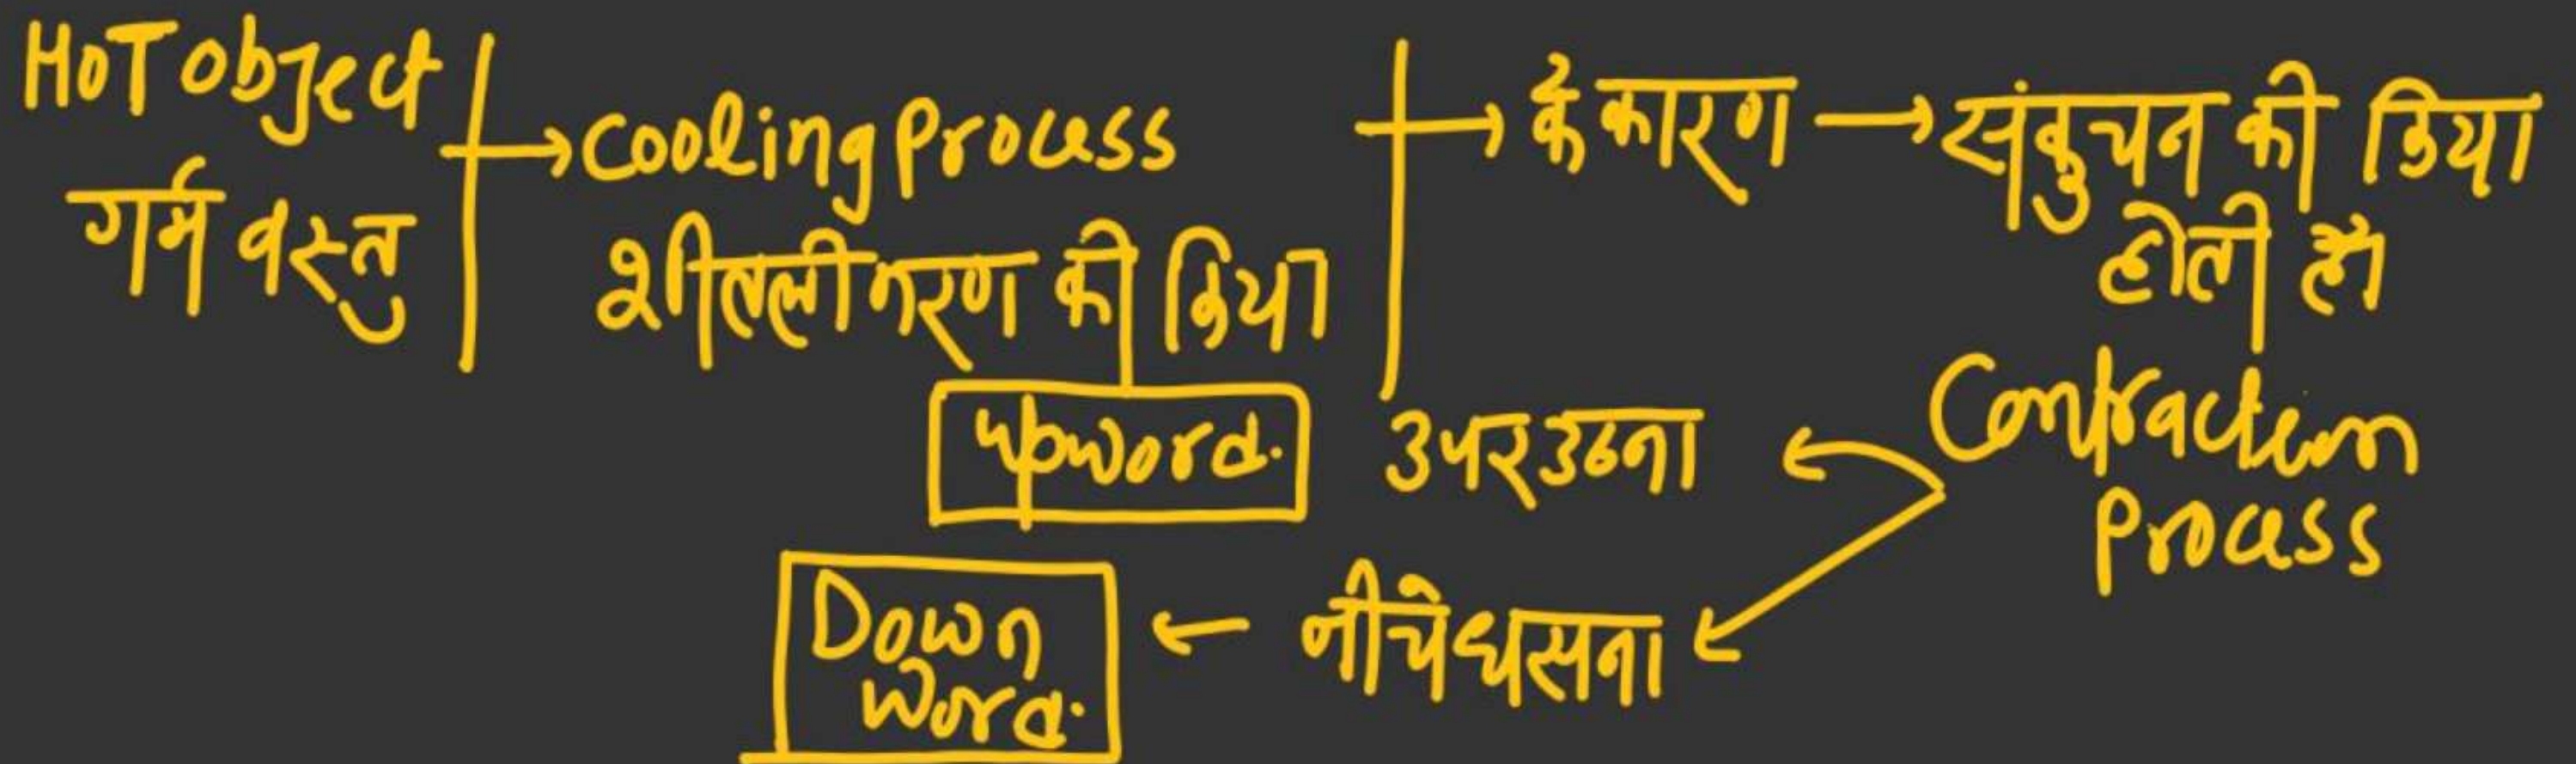 HOT object
गर्म वस्तु
→ cooling process
शीतलीकरण की क्रिया
→ के कारण → संकुचन की क्रिया
होती है।
Contraction
process
upword. उपर उठना ←
Down
word. ← नीचे धसना